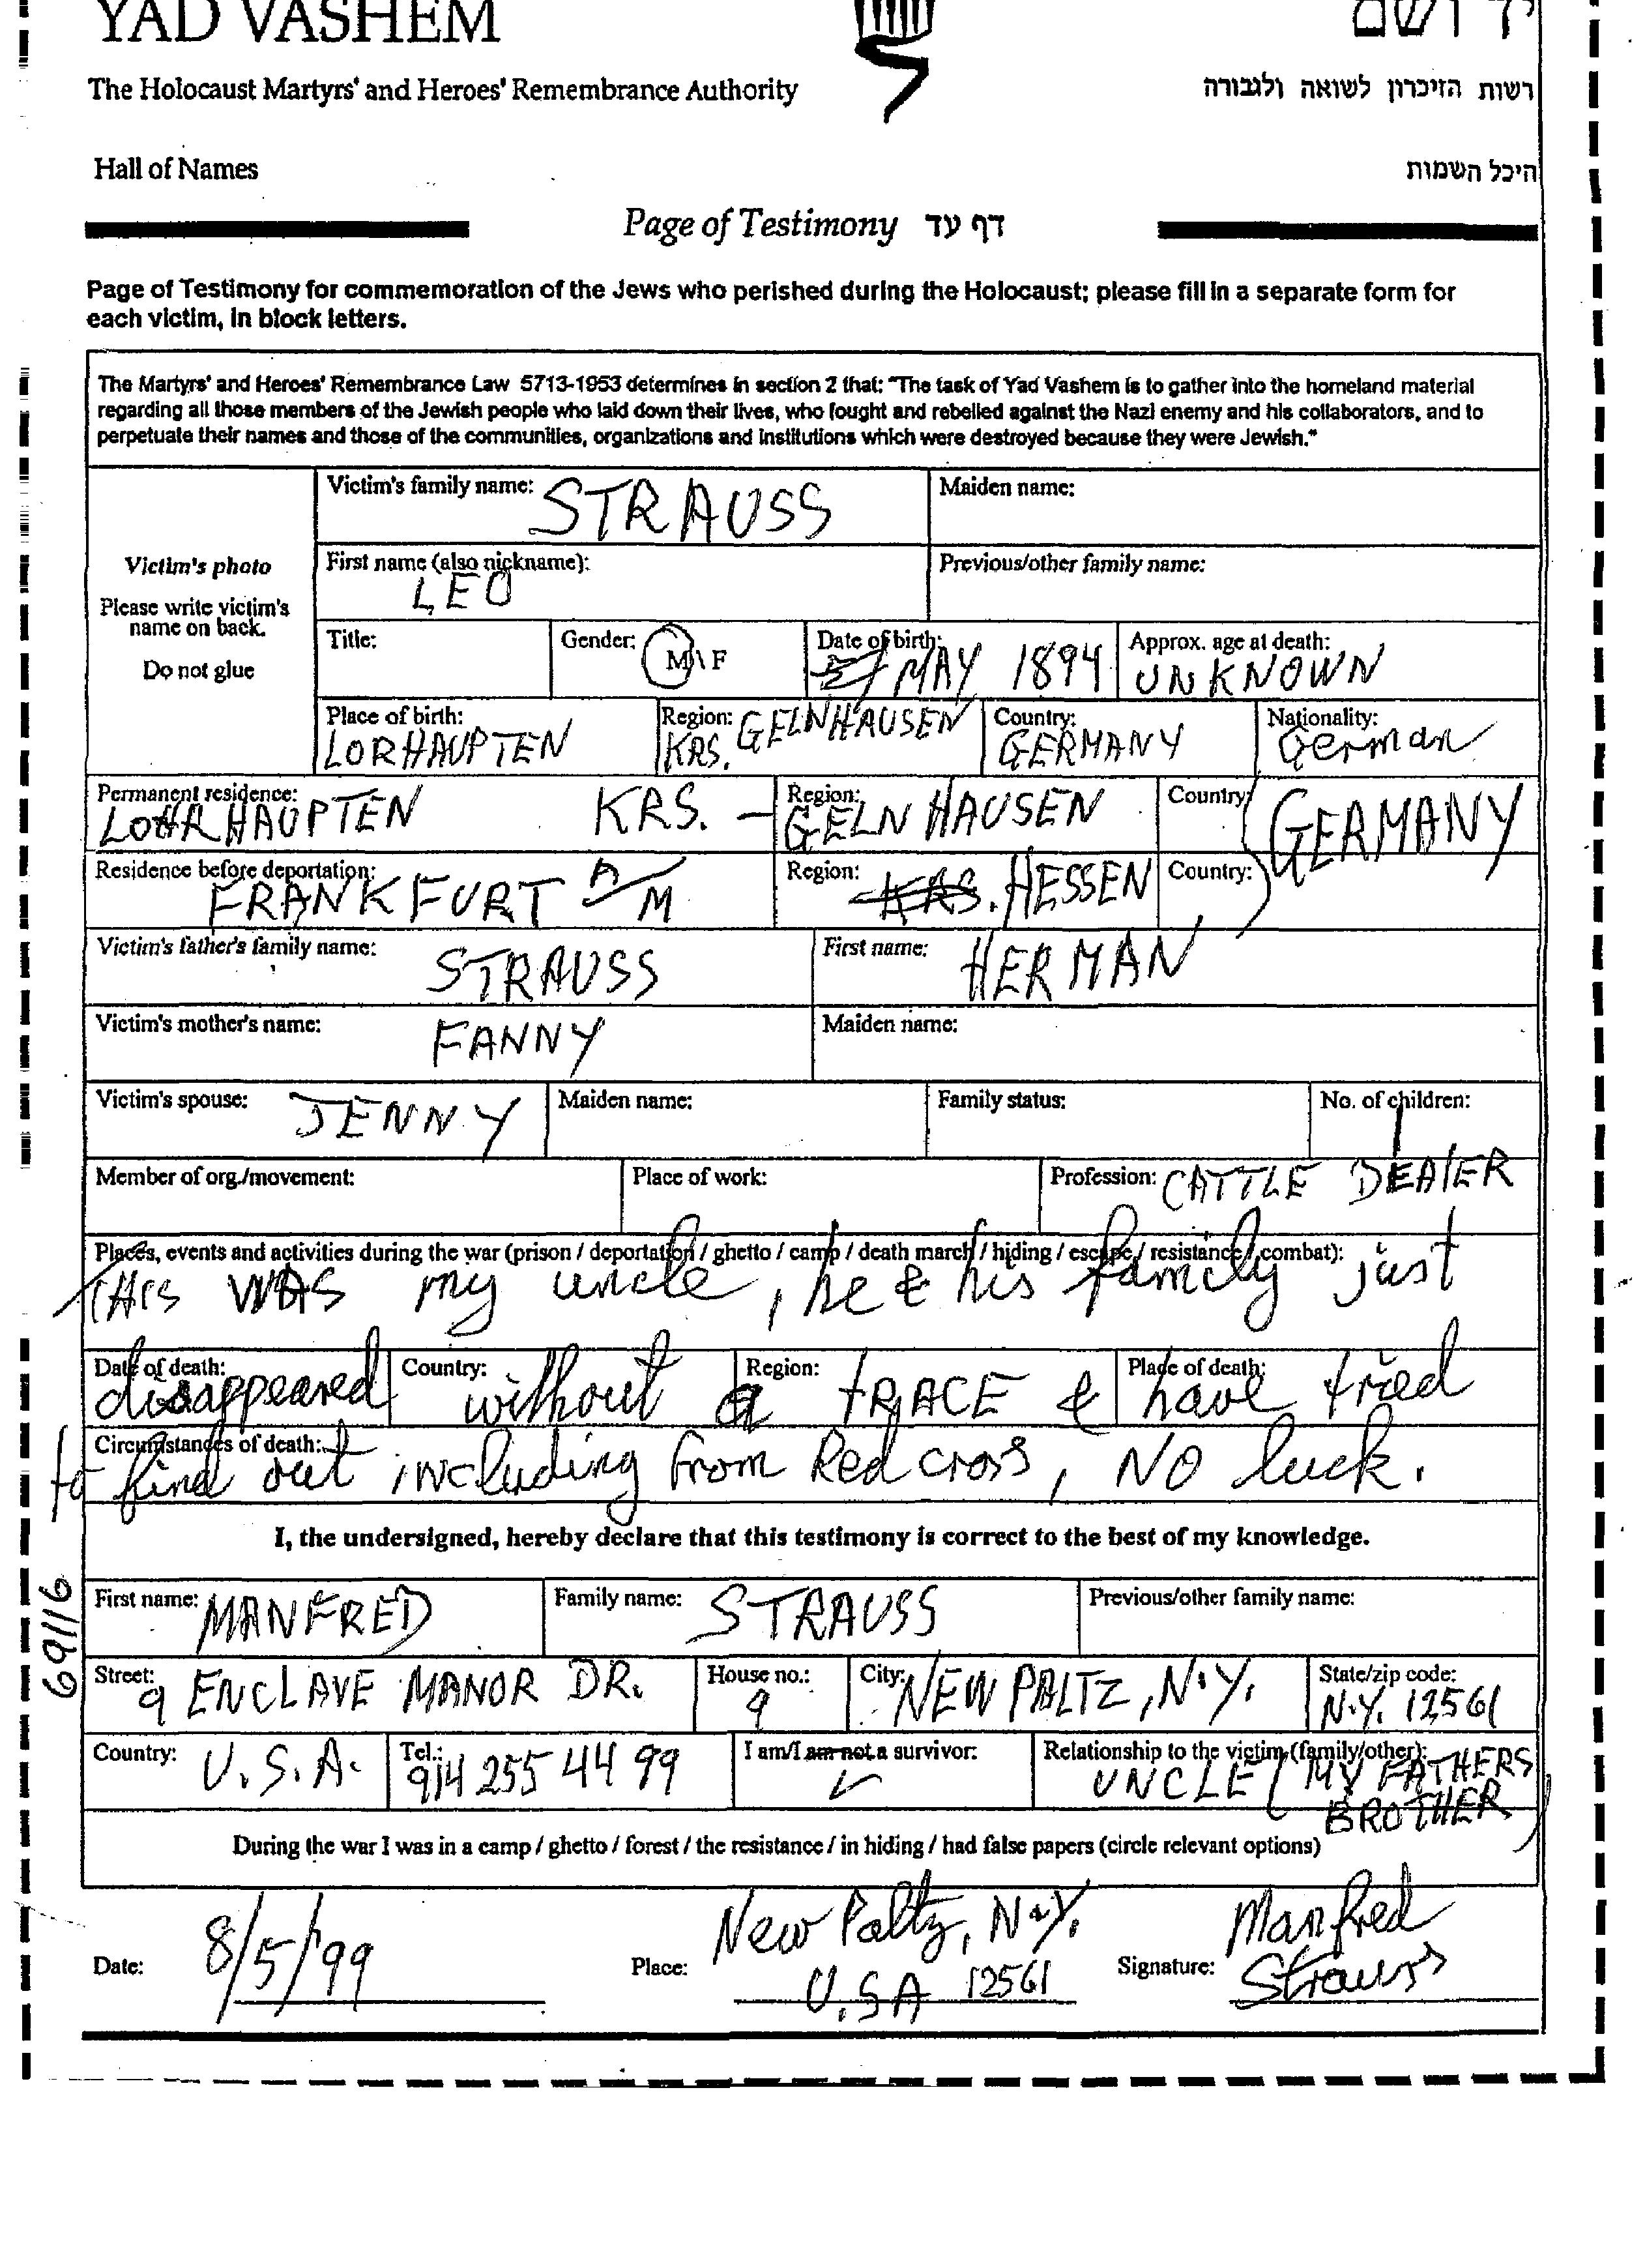 YAD VASHEM
יד ושם
The Holocaust Martyrs' and Heroes' Remembrance Authority
רשות הזיכרון לשואה ולגבורה
Hall of Names
היכל השמות
Page of Testimony דף עד
Page of Testimony for commemoration of the Jews who perished during the Holocaust; please fill in a separate form for
each victim, in block letters.
The Martyrs' and Heroes' Remembrance Law 5713-1953 determines in section 2 that: "The task of Yad Vashem is to gather into the homeland material
regarding all those members of the Jewish people who laid down their lives, who fought and rebelled against the Nazi enemy and his collaborators, and to
perpetuate their names and those of the communities, organizations and institutions which were destroyed because they were Jewish."
Victim's photo
Please write victim's
name on back.
Do not glue
Victim's family name: STRAUSS
Maiden name:
First name (also nickname): LEO
Previous/other family name:
Title:
Gender: M\F
Date of birth: MAY 1894
Approx. age at death: UNKNOWN
Place of birth: LORHAUPTEN
Region: KRS. GELNHAUSEN
Country: GERMANY
Nationality: German
Permanent residence: LOHRHAUPTEN KRS. -
Region: GELNHAUSEN
Country: GERMANY
Residence before deportation: FRANKFURT A/M
Region: KRS. HESSEN
Country:
Victim's father's family name: STRAUSS
First name: HERMAN
Victim's mother's name: FANNY
Maiden name:
Victim's spouse: JENNY
Maiden name:
Family status:
No. of children: 1
Member of org./movement:
Place of work:
Profession: CATTLE DEALER
Places, events and activities during the war (prison / deportation / ghetto / camp / death march / hiding / escape / resistance / combat):
THIS WAS my uncle, he & his family just
Date of death: Country: Region: Place of death:
disappeared without a TRACE & have tried
Circumstances of death:
to find out including from Red cross, NO luck.
I, the undersigned, hereby declare that this testimony is correct to the best of my knowledge.
69116
First name: MANFRED
Family name: STRAUSS
Previous/other family name:
Street: 9 ENCLAVE MANOR DR.
House no.: 9
City: NEW PALTZ, N.Y.
State/zip code: N.Y. 12561
Country: U.S.A.
Tel.: 914 255 4499
I am/I am not a survivor: ✓
Relationship to the victim (family/other): UNCLE (MY FATHERS
BROTHER)
During the war I was in a camp / ghetto / forest / the resistance / in hiding / had false papers (circle relevant options)
Date: 8/5/99
Place: New Paltz, N.Y.
U.S.A 12561
Signature: Manfred
Strauss